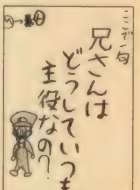 ここで一句
兄さんは
どうしていつも
主役なの?